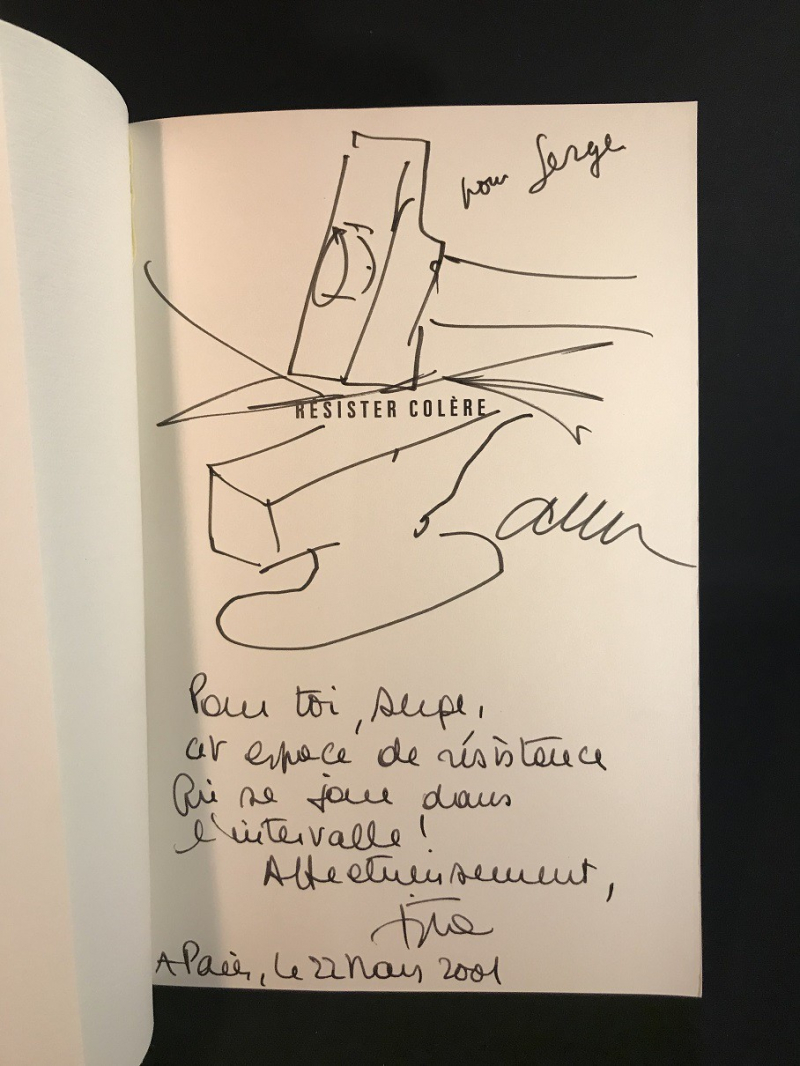 pour Serge
RÉSISTER COLÈRE
Pour toi, Serge,
cet espace de résistence
Qui se joue dans
l'intervalle !
Affectueusement,
A Paris, le 22 Mars 2001